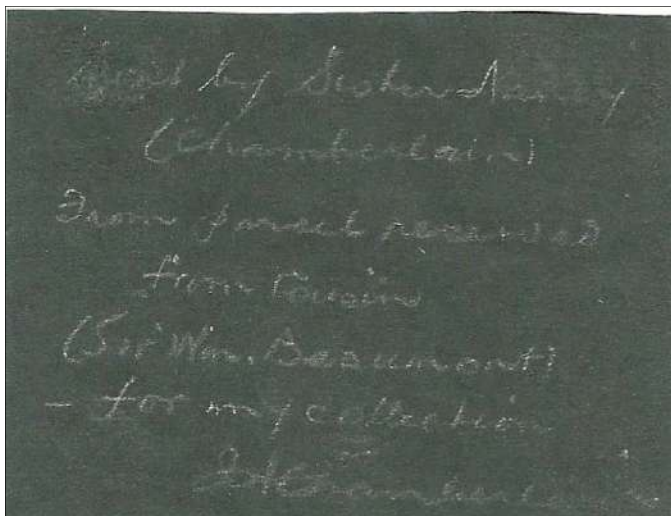 by Sister Nancy
(Chamberlain)
From parcel received
from Cousin
(Sir Wm. Beaumont)
- for my collection
Chamberlain